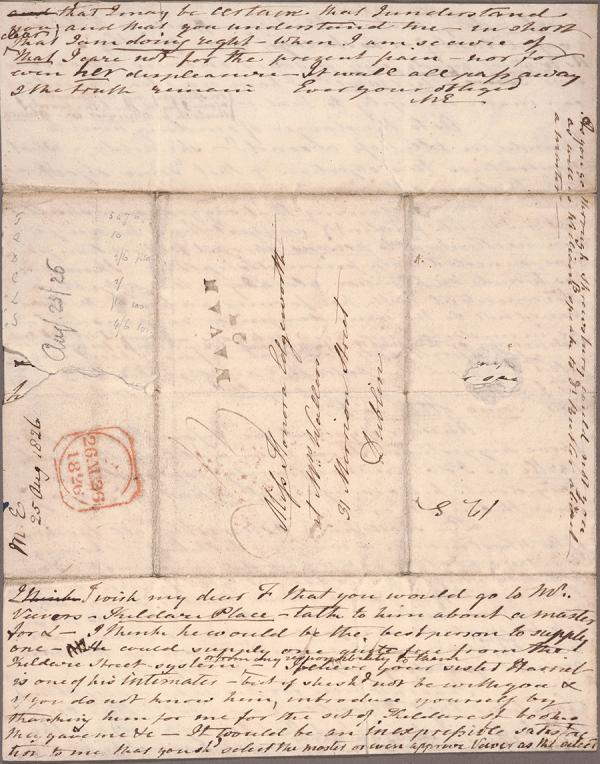 and that I may be certain that I understand
you and that you understand me - in short
that I am doing right - when I am secure of
that I care not for the present pain - nor for
even her displeasure - It will all pass away
& the truth remain Ever your obliged
ME
As you go through Shrewsbury would
as well as
NAVAN
23
Miss Honora Edgeworth
at Mrs Wallers
31 Merrion Street
Dublin
Aug 25/26
M E
25 Aug 1826
26 AU 26
1826
I think I wish my dear F that you would go to Mr.
Vevers - Kildare Place - talk to him about a master
for L - I think he would be the best person to supply
one - He could supply one quite free from the
Kildare Street system from any responsibility to them your sister Harriet
is one of his intimates - but if she shd not be with you &
if you do not know him, introduce yourself by
thanking him for me for the set of Kildare St books
they gave me &c - It would be an inexpressible satisfac
tion to me that you shd select the master or even approve Vever as the select